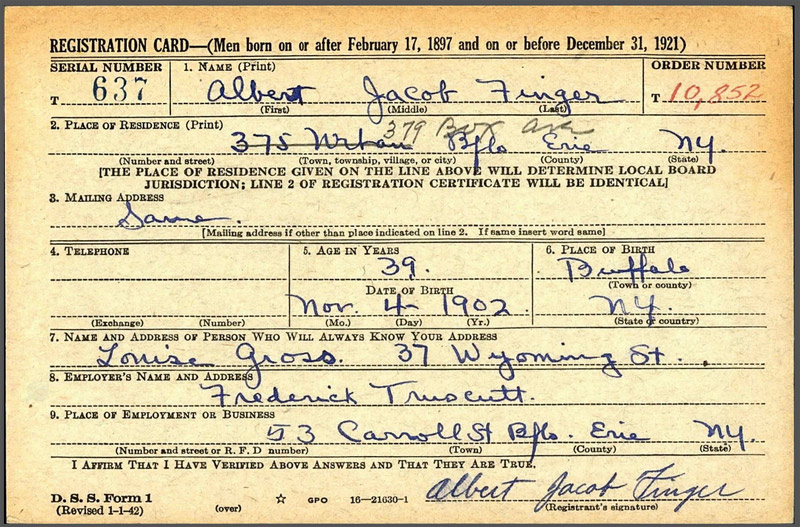 REGISTRATION CARD—(Men born on or after February 17, 1897 and on or before December 31, 1921)
SERIAL NUMBER 1. NAME (Print) ORDER NUMBER
T 637 Albert Jacob Finger T 10,852
(First) (Middle) (Last)
2. PLACE OF RESIDENCE (Print) 379 Box Ave
375 Urban Bflo Erie N.Y.
(Number and street) (Town, township, village, or city) (County) (State)
[THE PLACE OF RESIDENCE GIVEN ON THE LINE ABOVE WILL DETERMINE LOCAL BOARD
JURISDICTION; LINE 2 OF REGISTRATION CERTIFICATE WILL BE IDENTICAL]
3. MAILING ADDRESS
Same.
[Mailing address if other than place indicated on line 2. If same insert word same]
4. TELEPHONE 5. AGE IN YEARS 6. PLACE OF BIRTH
39. Buffalo
DATE OF BIRTH (Town or county)
Nov. 4 1902 N.Y.
(Exchange) (Number) (Mo.) (Day) (Yr.) (State or country)
7. NAME AND ADDRESS OF PERSON WHO WILL ALWAYS KNOW YOUR ADDRESS
Louise Gross. 37 Wyoming St.
8. EMPLOYER'S NAME AND ADDRESS
Frederick Truscutt.
9. PLACE OF EMPLOYMENT OR BUSINESS
53 Carroll St Bflo. Erie N.Y.
(Number and street or R. F. D number) (Town) (County) (State)
I AFFIRM THAT I HAVE VERIFIED ABOVE ANSWERS AND THAT THEY ARE TRUE.
D. S. S. Form 1 Albert Jacob Finger
(Revised 1-1-42) (over) ☆ GPO 16—21630-1 (Registrant's signature)